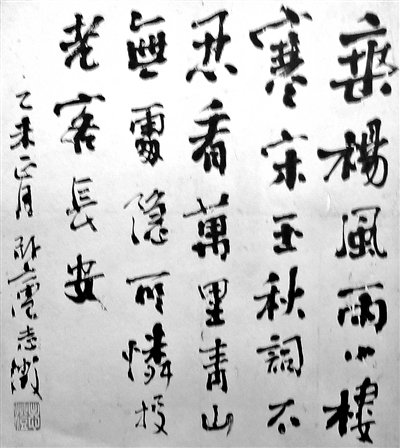 垂楊風雨小樓
寒宋玉秋詞不
忍看萬里青山
無處隱可憐投
老客長安
乙未正月